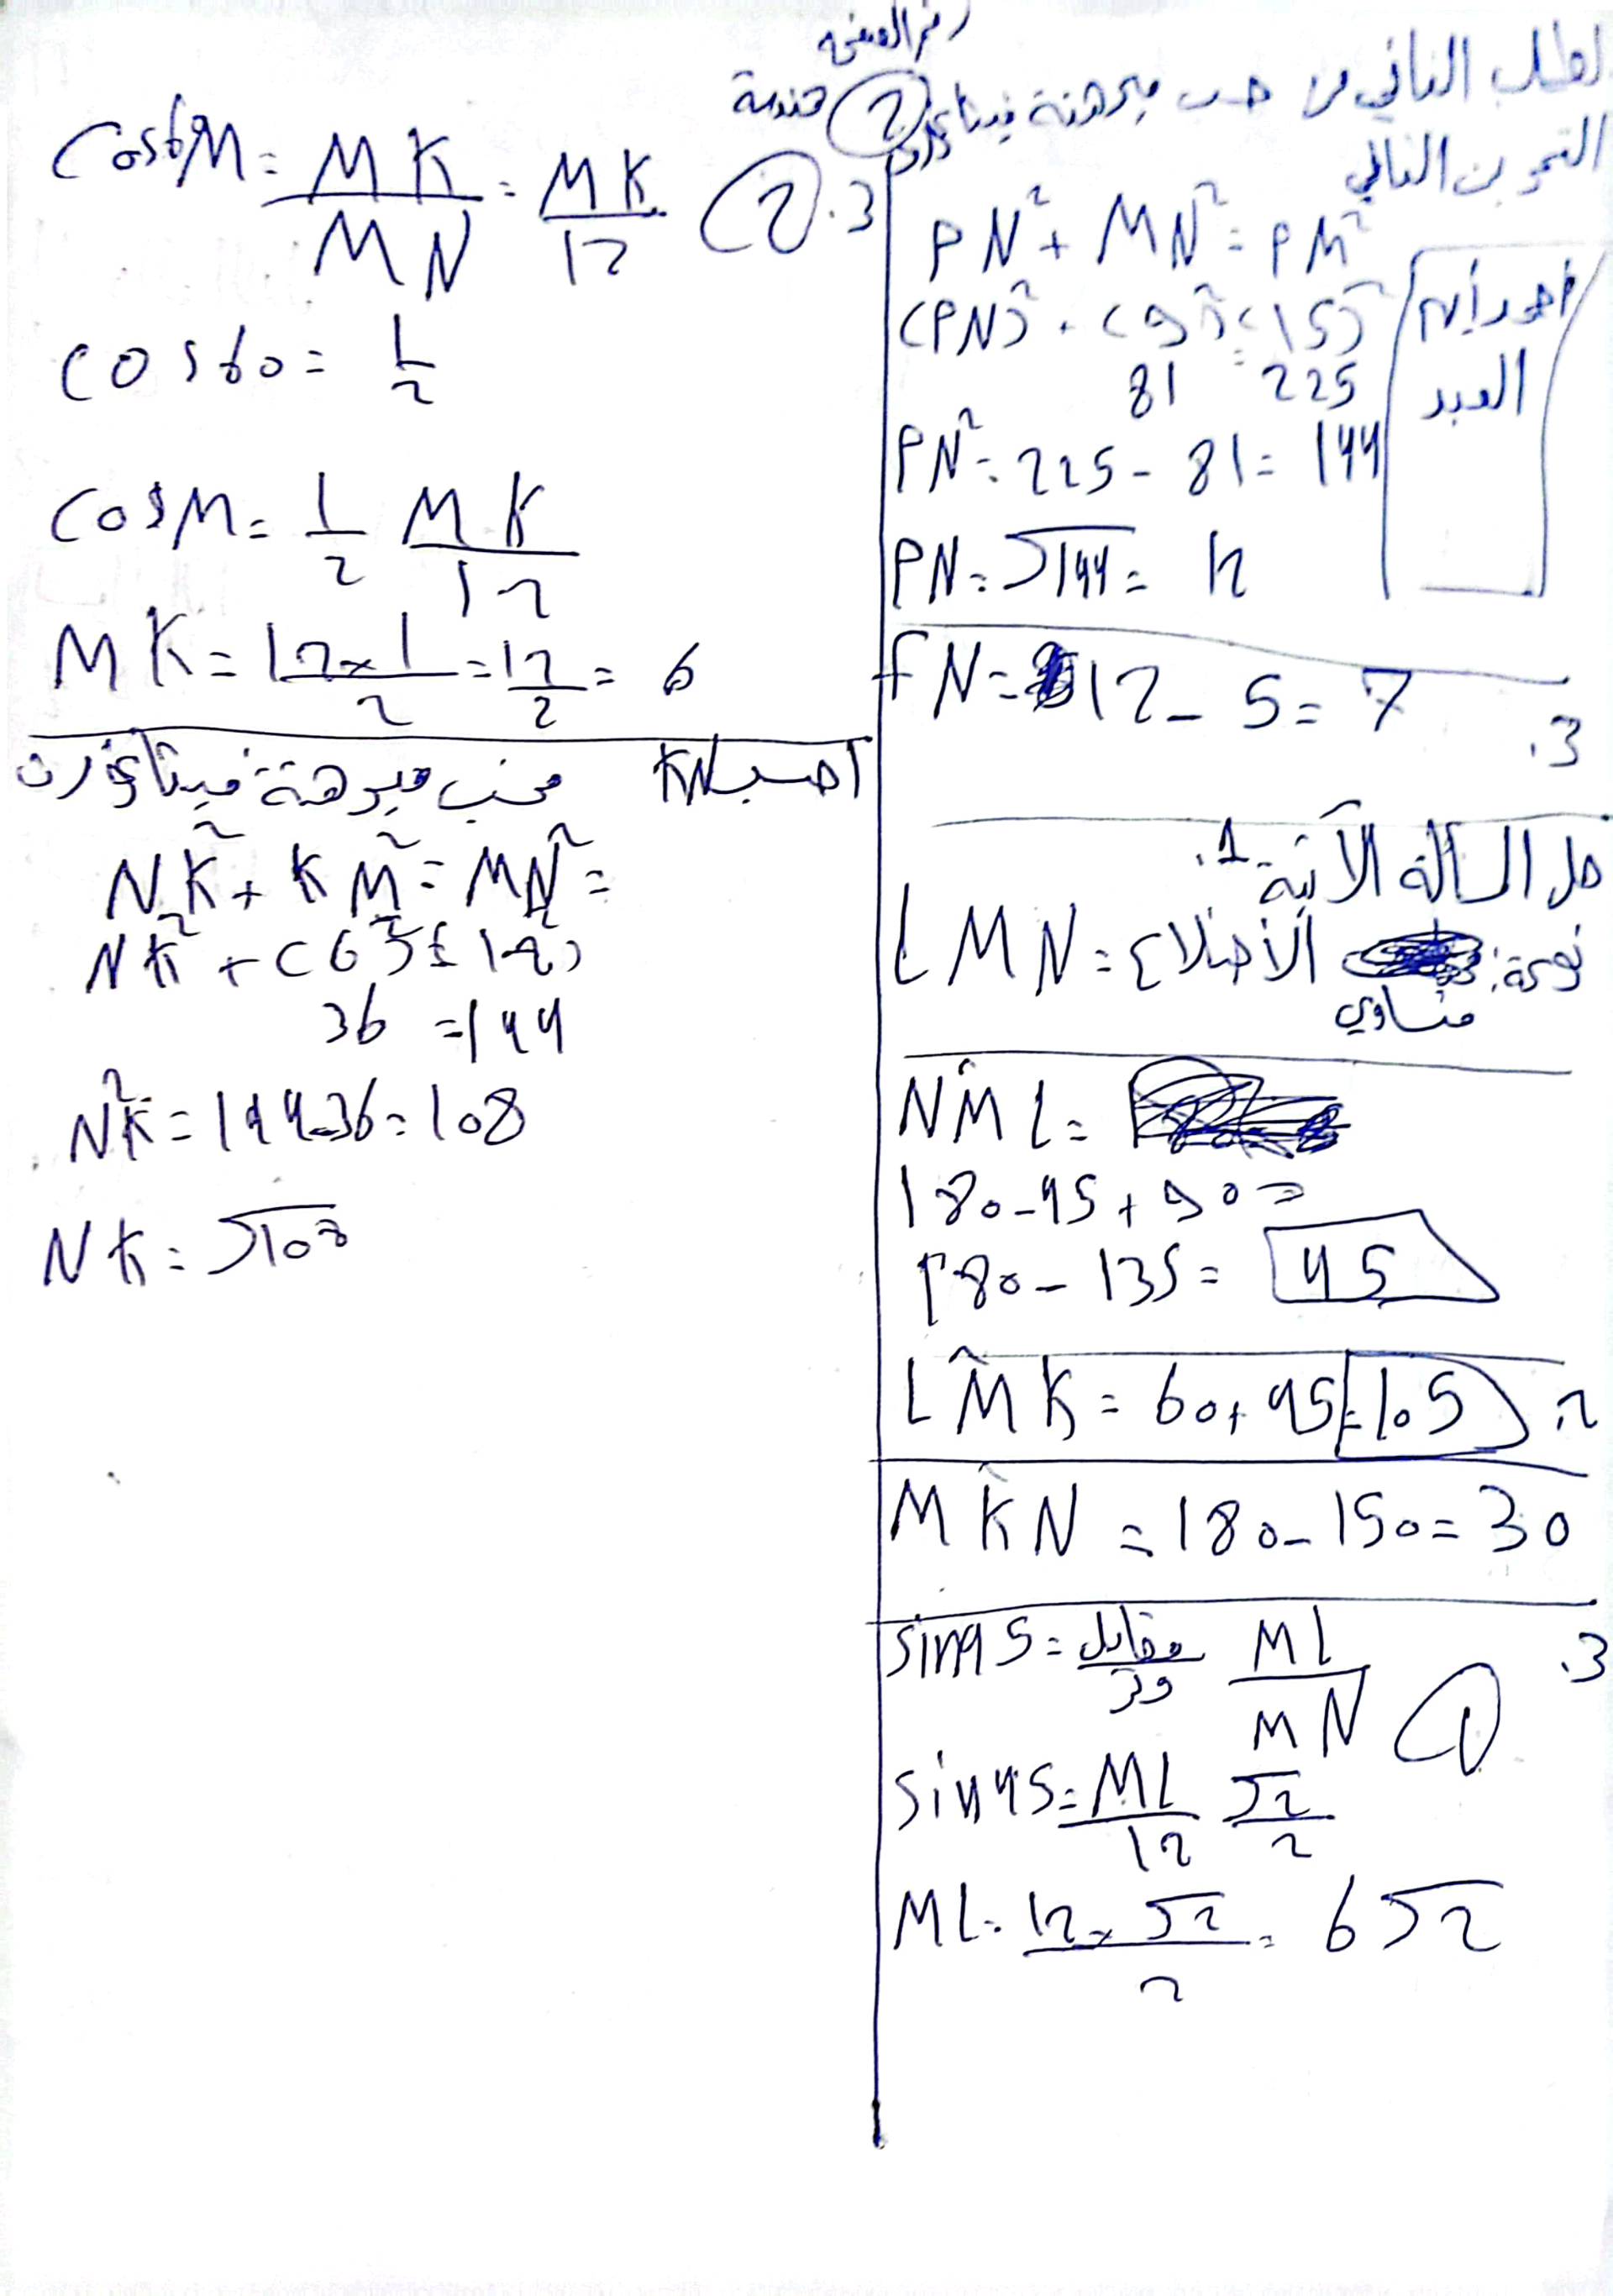 رقم الصفحة
2 هندسة
لطلب الثاني من حسب مبرهنة فيتاغورث
التمرين التالي
PN² + MN² = PM²
(PN)² + (9)² = (15)²
81 = 225
PN² = 225 - 81 = 144
PN = √144 = 12
العبد
FN = 12 - 5 = 7
.3
حل المسألة الآتية 1.
LMN = الأضلاع
متساوي
NM̂L =
180 - 45 + 90 =
180 - 135 = 45
LM̂K = 60 + 45 = 105 .2
MK̂N = 180 - 150 = 30
sin45 = مقابل/وتر ML/MN 1 .3
sin45 = ML/12 √2/2
ML = 12 × √2/2 = 6√2
Cos60M = MK/MN = MK/12 2 .3
cos60 = 1/2
CosM = 1/2 MK/12
MK = 12×1/2 = 12/2 = 6
احسب KN حسب مبرهنة فيتاغورث
NK² + KM² = MN² =
NK² + (6)² = (12)²
36 = 144
NK² = 144 - 36 = 108
NK = √108